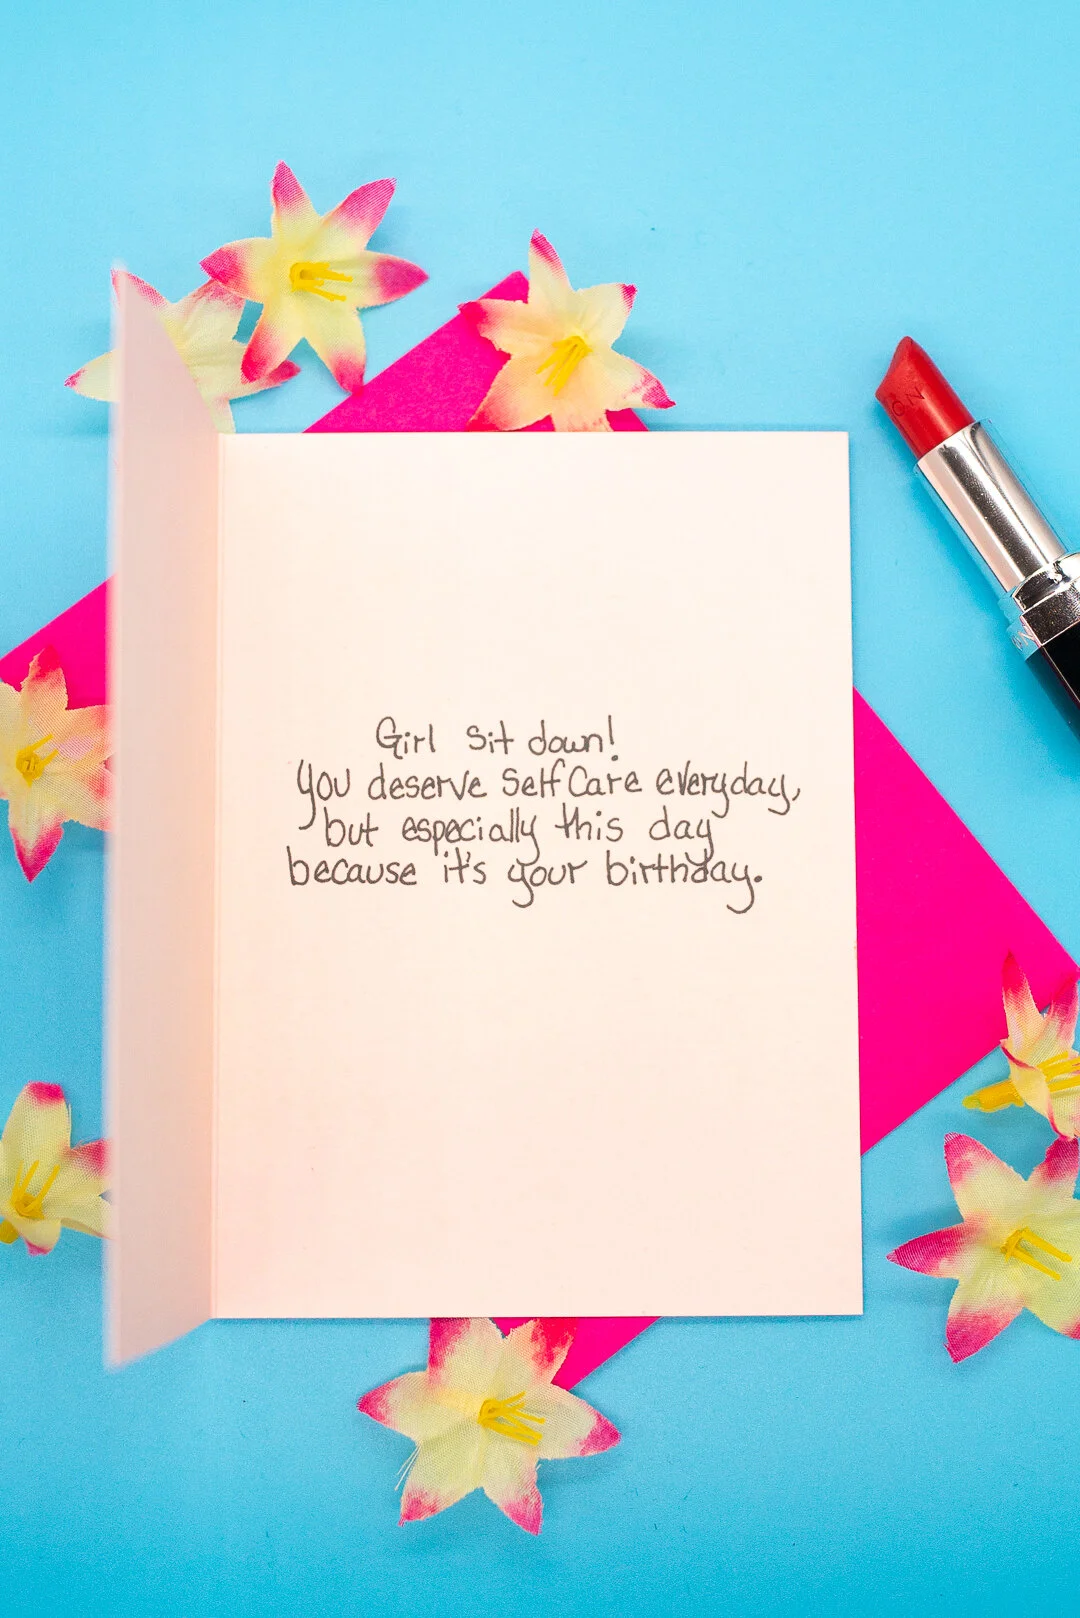 Girl sit down!
You deserve Self Care everyday,
but especially this day
because it's your birthday.